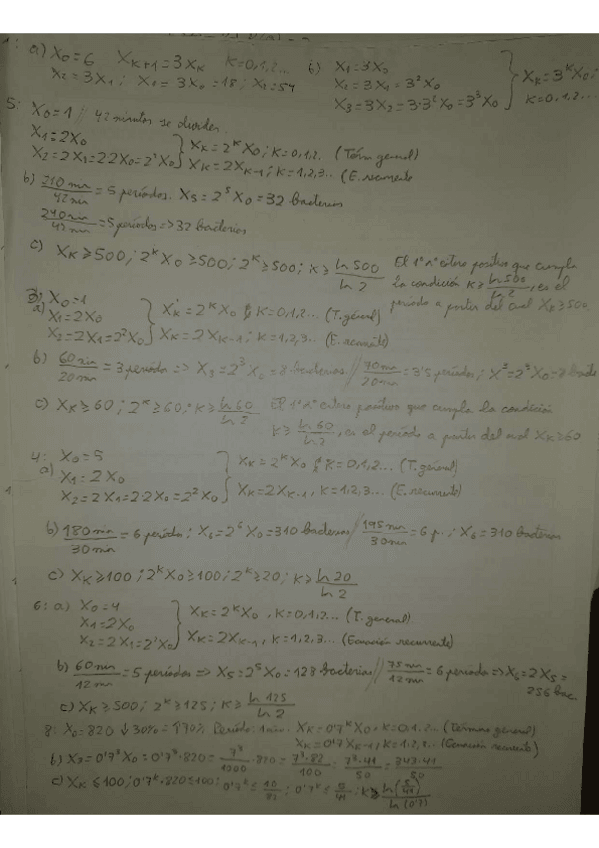 a) X₀=6 X_{K+1}=3X_K K=0,1,2... 6) X₁=3X₀
X₂=3X₁; X₁=3X₀=18; X₂=54 X₂=3X₁=3²X₀ } X_K=3^K X₀;
X₃=3X₂=3·3²X₀=3³X₀ K=0,1,2...
5: X₀=1 // 42 minutos se dividen.
X₁=2X₀ } X_K=2^K X₀; K=0,1,2. (Térm general)
X₂=2X₁=22X₀=2²X₀ } X_K=2X_{K-1}; K=1,2,3... (E. recurrente)
b) 210 min/42 min = 5 períodos. X₅=2⁵X₀=32 bacterias
240 min/42 min = 5 períodos => 32 bacterias
c) X_K≥500; 2^K X₀≥500; 2^K≥500; K≥ ln 500/ln 2 El 1º nº entero positivo que cumpla
la condición K≥ ln 500/ln 2, es el
período a partir del cual X_K≥500
3: X₀=1
a) X₁=2X₀ } X_K=2^K X₀ K=0,1,2... (T. general)
X₂=2X₁=2²X₀ } X_K=2X_{K-1}; K=1,2,3... (E. recurrente)
b) 60 min/20 min = 3 período => X₃=2³X₀=8 bacterias // 70 min/20 min = 3'5 períodos; X³=2³X₀=8
c) X_K≥60; 2^K≥60; K≥ ln 60/ln 2 El 1º nº entero positivo que cumpla la condición
K≥ ln 60/ln 2, es el período a partir del cual X_K≥60
4: X₀=5
a) X₁=2X₀ } X_K=2^K X₀ K=0,1,2... (T. general)
X₂=2X₁=22X₀=2²X₀ } X_K=2X_{K-1}, K=1,2,3... (E. recurrente)
b) 180 min/30 min = 6 períodos; X₆=2⁶X₀=310 bacterias // 195 min/30 min = 6 p.; X₆=310 bacterias
c) X_K≥100; 2^K X₀≥100; 2^K≥20; K≥ ln 20/ln 2
6: a) X₀=4
X₁=2X₀ } X_K=2^K X₀, K=0,1,2... (T. general)
X₂=2X₁=2²X₀ } X_K=2X_{K-1}, K=1,2,3... (Ecuación recurrente)
b) 60 min/12 min = 5 períodos => X₅=2⁵X₀=128 bacterias // 75 min/12 min = 6 períodos => X₆=2X₅=
256 bac.
c) X_K≥500; 2^K≥125; K≥ ln 125/ln 2
8: X₀=820 ↓30% = ↑70% Período: 1 año. X_K=0'7^K X₀, K=0,1,2.. (Término general)
X_K=0'7X_{K-1}; K=1,2,3.. (Ecuación recurrente)
b) X₃=0'7³X₀=0'7³·820= 7³/1000 ·820= 7³·82/100 = 7³·41/50 = 343·41/50
c) X_K≤100; 0'7^K·820≤100; 0'7^K≤ 10/82; 0'7^K≤ 5/41; K≥ ln(5/41)/ln(0'7)